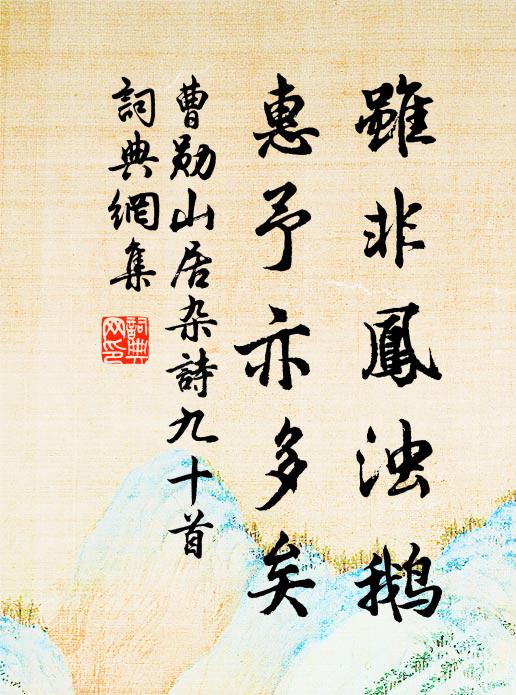 雖非鳳浊鵝
惠予亦多矣
曹勛山居杂詩九十首
詞典網集
詞典网印